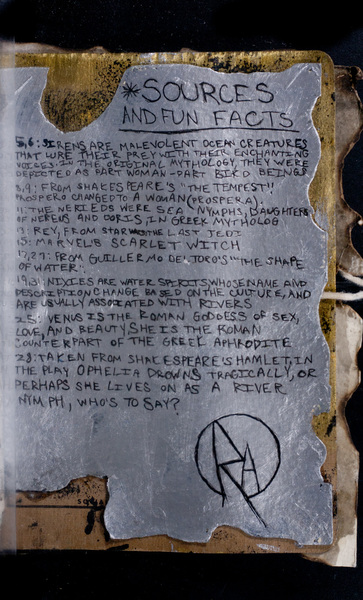 *SOURCES
AND FUN FACTS
5,6: SIRENS ARE MALEVOLENT OCEAN CREATURES
THAT LURE THEIR PREY WITH THEIR ENCHANTING
VOICES. IN THE ORIGINAL MYTHOLOGY, THEY WERE
DEPICTED AS PART WOMAN-PART BIRD BEINGS
8,9: FROM SHAKESPEARE'S "THE TEMPEST"
PROSPERO CHANGED TO A WOMAN (PROSPERA).
11: THE NEREIDS WERE SEA NYMPHS, DAUGHTERS
OF NEREUS AND DORIS, IN GREEK MYTHOLOG
13: REY, FROM STAR WARS THE LAST JEDI
15: MARVEL'S SCARLET WITCH
17,27: FROM GUILLERMO DEL TORO'S "THE SHAPE
OF WATER".
19,31: NIXIES ARE WATER SPIRITS WHOSE NAME AND
DESCRIPTION CHANGE BASED ON THE CULTURE, AND
ARE USUALLY ASSOCIATED WITH RIVERS
25: VENUS IS THE ROMAN GODDESS OF SEX,
LOVE, AND BEAUTY, SHE IS THE ROMAN
COUNTERPART OF THE GREEK APHRODITE
28: TAKEN FROM SHAKESPEARE'S HAMLET, IN
THE PLAY OPHELIA DROWNS TRAGICALLY, OR
PERHAPS SHE LIVES ON AS A RIVER
NYMPH, WHO'S TO SAY?
RA